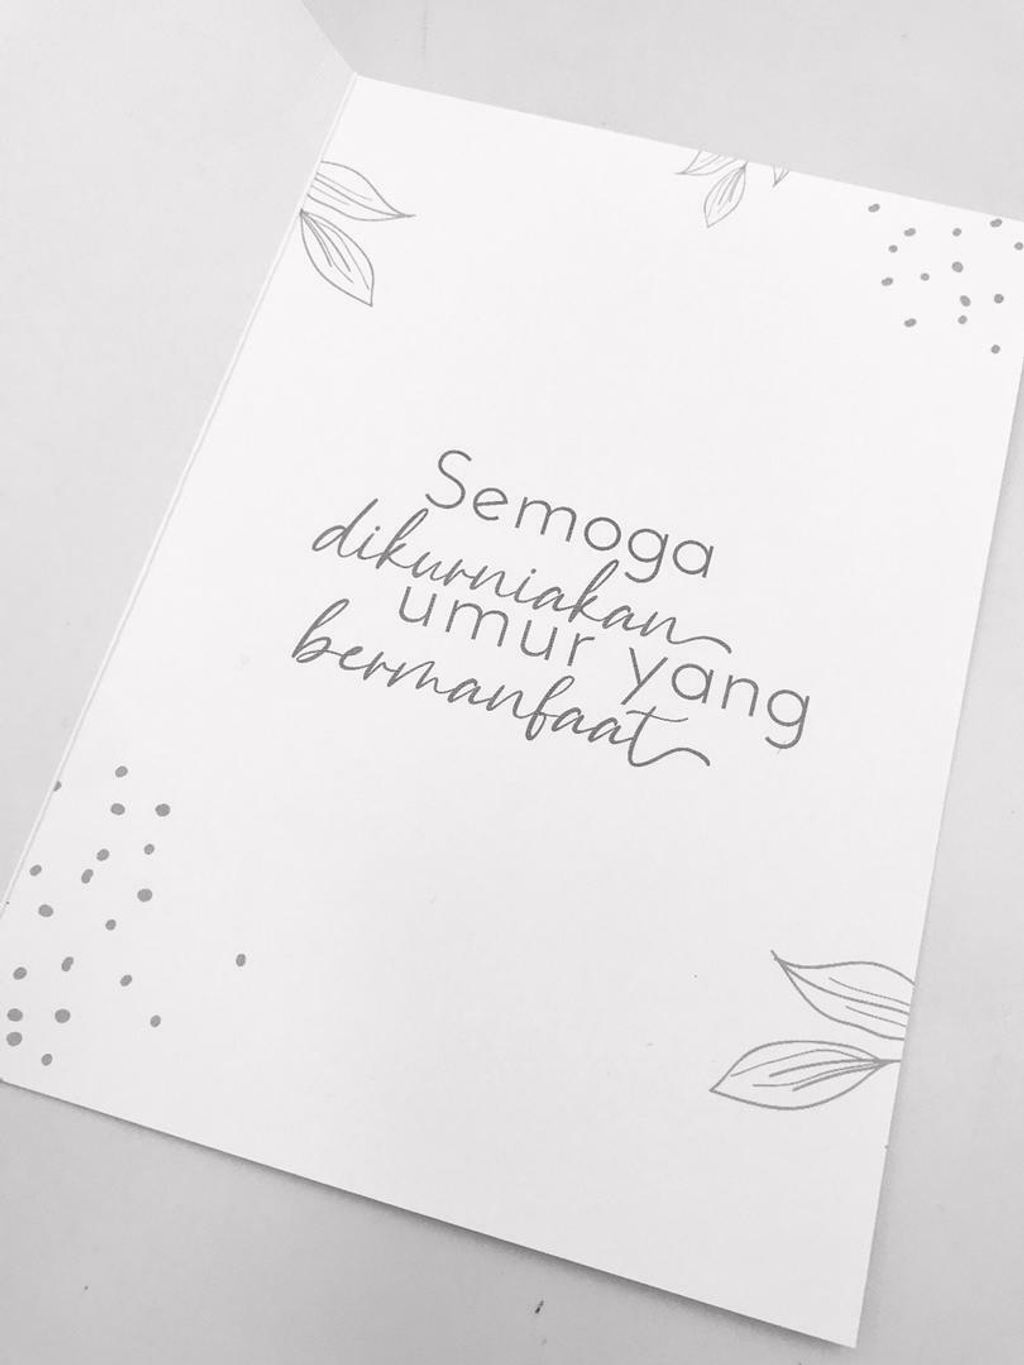 Semoga
dikurniakan
umur yang
bermanfaat